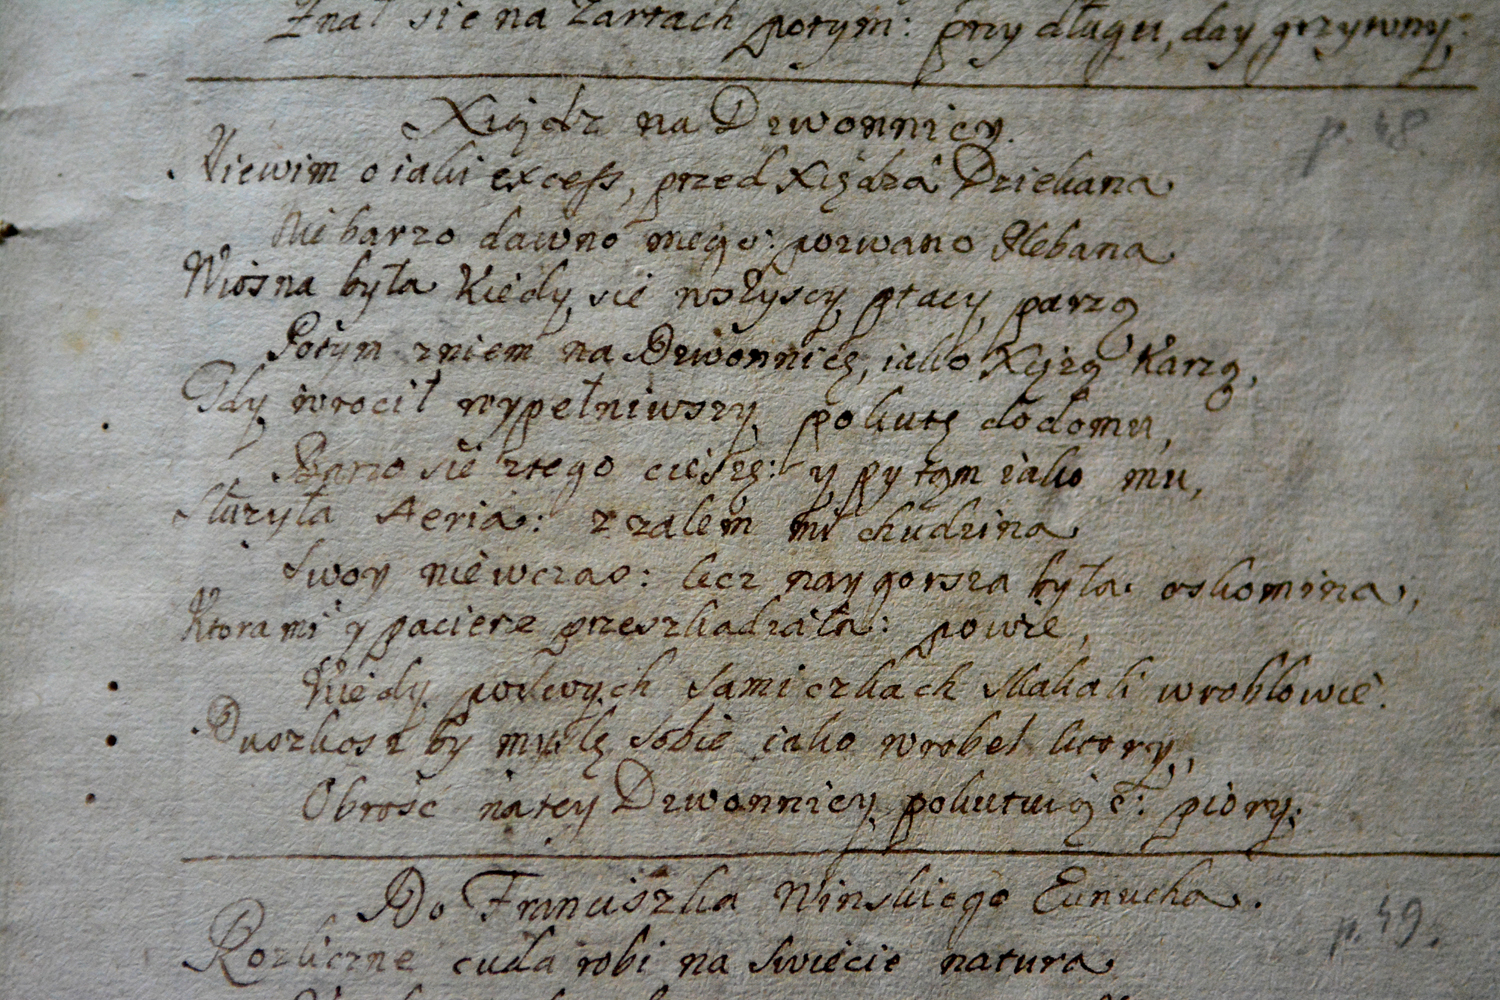 Znał sie na Zartach potym: przy długu, day grzywny:
Xiądz na Dzwonnicy.
p. 48.
Niewim o iaki excess, przed Xiędzâ Dziekana
Nie barzo dawno mego: pozwano Plebana
Wiosna była kiedy sie wszyscy ptacy parzą
Potym zniem na Dzwonnicę, iako Xiżą karzą,
Gdy wrocił wypełniwszy pokutę dodomu,
Barzo sie ztego cieszę: y pytąm iako mu,
Służyła Aeria: z zalem mi chudzina
Swoy niewczas: lecz naygorsza była oskomina,
Ktora mi y pacierze przeszkadzała: powie,
Kiedy po swych samiczkach skakali wroblowie.
Duszkosz by myślę sobie iako wrobel ktory,
Obrość natey Dzwonnicy pokutuiąc: piory.
Do Franciszka Ninskiego Eunucha.
p. 49.
Rozliczne cuda robi na swiecie natura